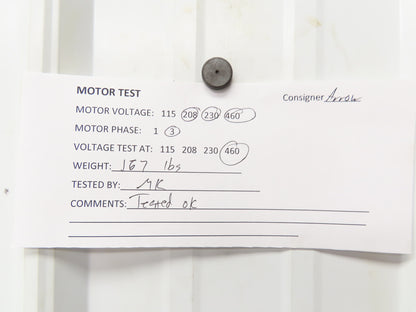 MOTOR TEST
Consigner Arrow
MOTOR VOLTAGE: 115 208 230 460
MOTOR PHASE: 1 3
VOLTAGE TEST AT: 115 208 230 460
WEIGHT: 167 lbs
TESTED BY: MK
COMMENTS: Tested ok